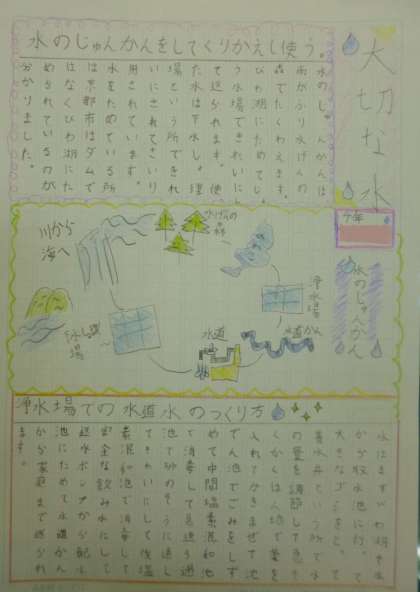 大切な水
四年
水のじゅんかん
水のじゅんかんをしてくりかえし使う。
水のじゅんかんは
雨がふり水げんの
森でたくわえます。
びわ湖にためてじょ
う水場できれいにし
て送られます。使っ
た水は下水しょ理
場という所できれ
いにされてさいり
用されています。
水をためている所
は京都市はダムで
はなくびわ湖にた
められているのが
分かりました。
水げんの
森
川から
海へ
浄水場
水道かん
水道
下水しょ理
場
浄水場での水道水のつくり方
水はまずびわ湖そ水
から取水池に行って
大きなごみをとって
着水井という所で水
の量を調節して急
かくはん池で薬を
入れてかきまぜて沈
でん池でごみをしず
めて中間塩素混和池
で消毒してろ過
池で砂のそうに通し
てきれいにして後塩
素混和池で消毒して
安全な飲み水にして
送水ポンプから配水
池にためて水道かん
から家庭まで送られ
ます。